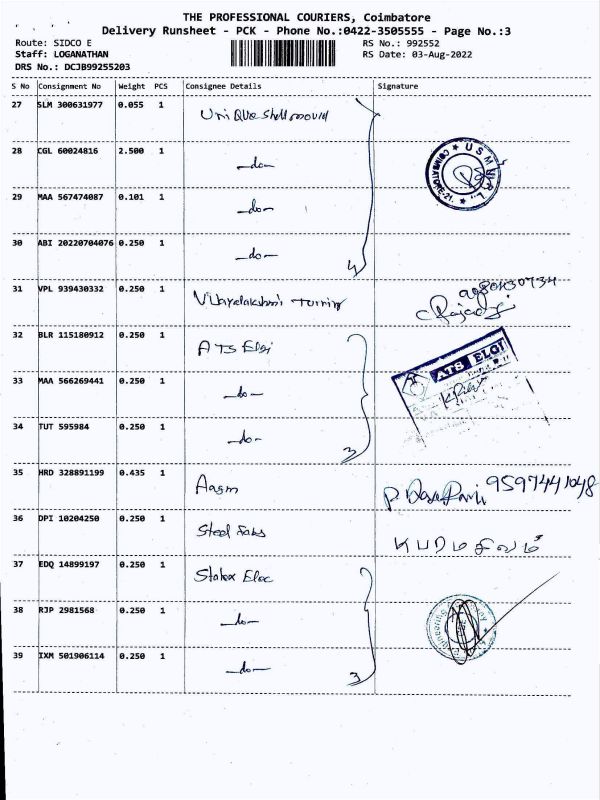 THE PROFESSIONAL COURIERS, Coimbatore
Delivery Runsheet - PCK - Phone No.:0422-3505555 - Page No.:3
Route: SIDCO E RS No.: 992552
Staff: LOGANATHAN RS Date: 03-Aug-2022
DRS No.: DCJB99255203
S No Consignment No Weight PCS Consignee Details Signature
27 SLM 300631977 0.055 1 Unique Shell mould
28 CGL 60024816 2.500 1 -do-
USM
COIMBATORE-21.
29 MAA 567474087 0.101 1 -do-
30 ABI 20220704076 0.250 1 -do-
4
31 VPL 939430332 0.250 1 Vijayalakshmi Turning
32 BLR 115180912 0.250 1 ATS Elgi
ATS ELGI
33 MAA 566269441 0.250 1 -do-
34 TUT 595984 0.250 1 -do-
3
35 HRD 328891199 0.435 1 Aagm 9597441048
36 DPI 10204250 0.250 1 Steel Fabs
37 EDQ 14899197 0.250 1 Statex Elec
38 RJP 2981568 0.250 1 -do-
Engineering
39 IXM 501906114 0.250 1 -do-
3